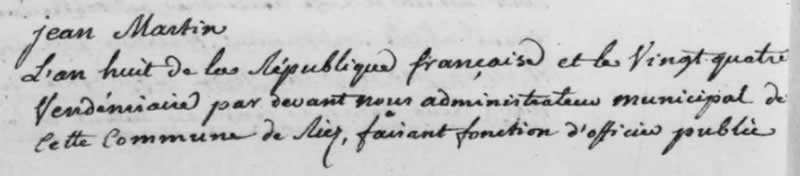 jean Martin
L'an huit de la République française et le Vingt quatre
Vendémiaire par devant nous administrateur municipal de
Cette Commune de Riez, faisant fonction d'officier public